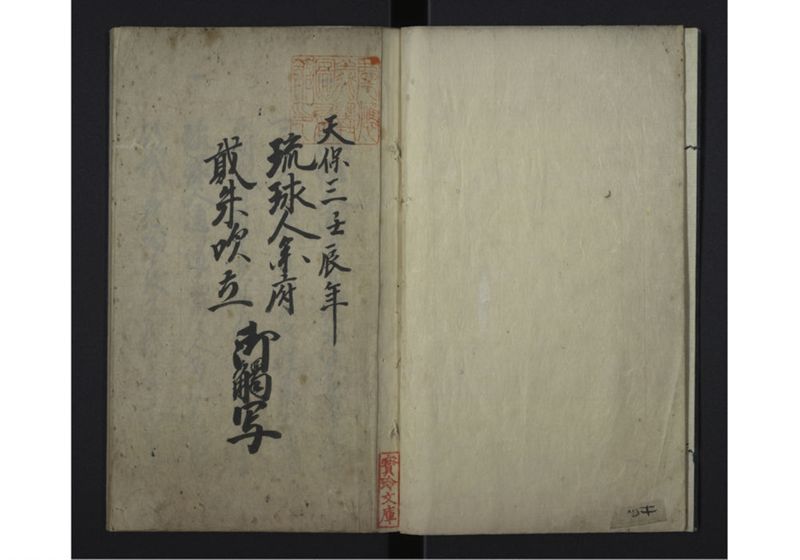 天保三壬辰年
琉球人参府
貳朱吹立
御觸写
寳玲文庫